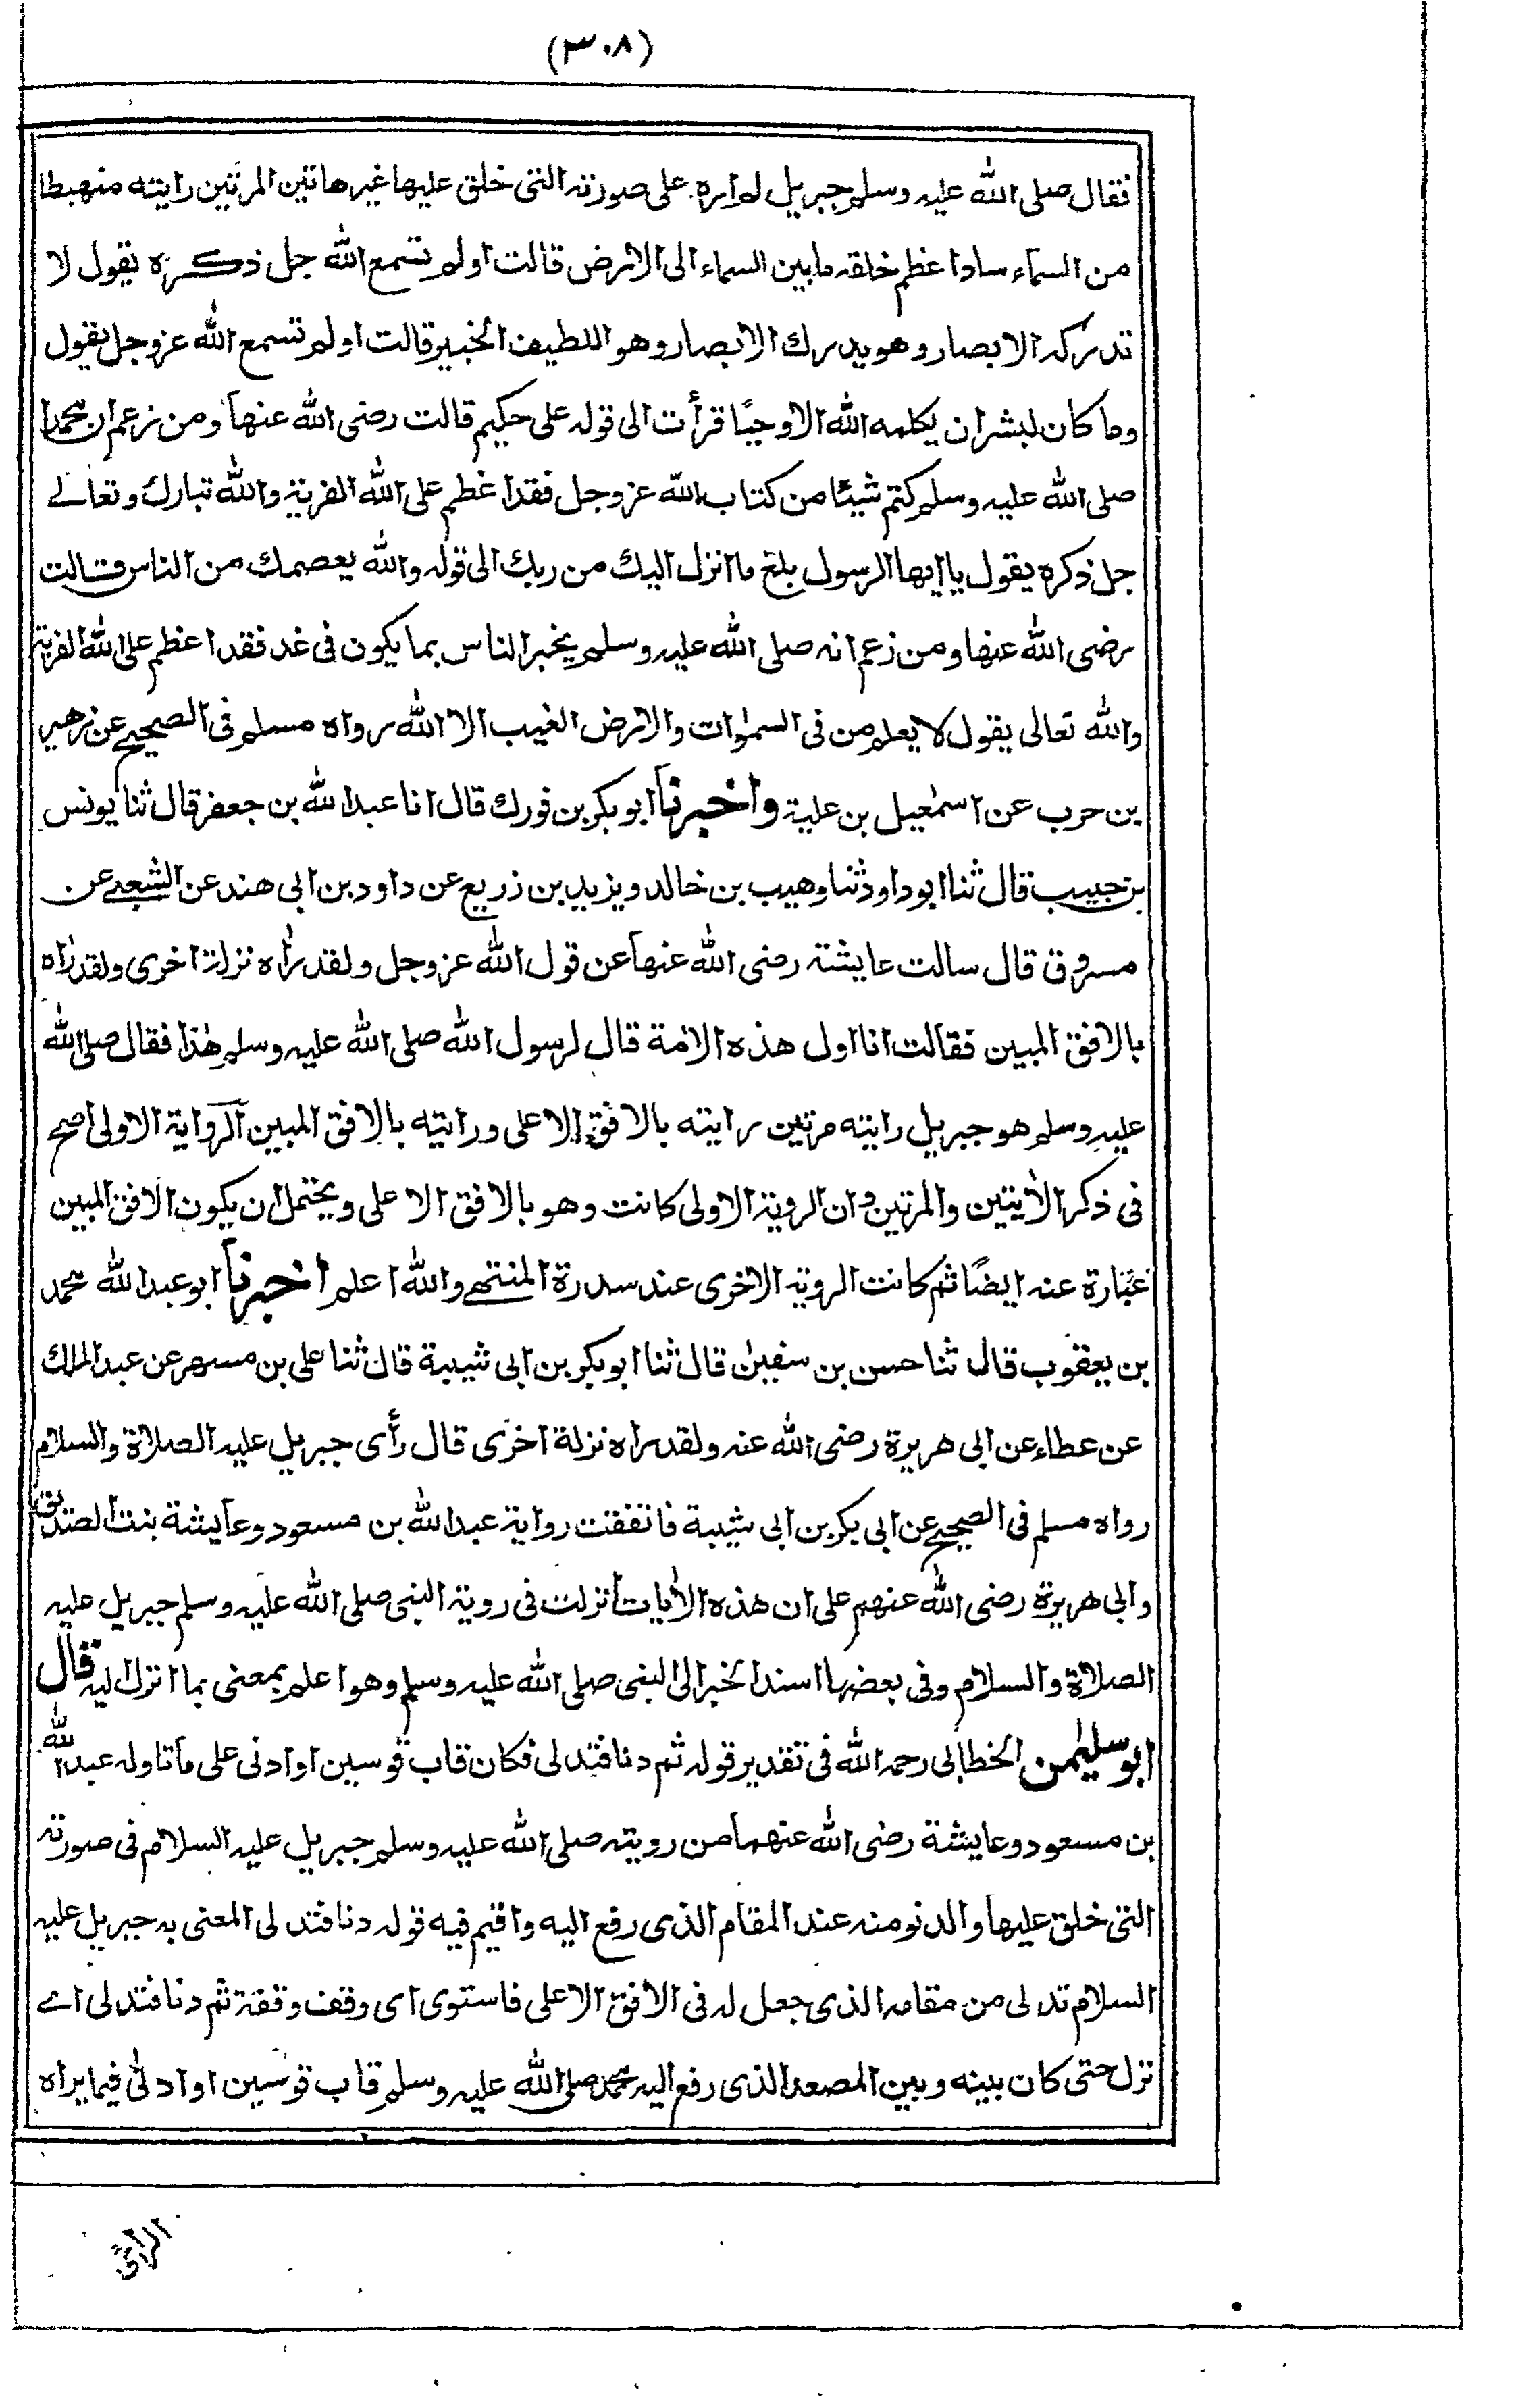 (٣٠٨)
فقال صلى الله عليه وسلم جبريل لم اره على صورته التى خلق عليها غير هاتين المرتين رايته منهبطا
من السماء سادا عظم خلقه ما بين السماء الى الارض قالت اولم تسمع الله جل ذكره يقول لا
تدركه الابصار وهو يدرك الابصار وهو اللطيف الخبير قالت اولم تسمع الله عز وجل يقول
وما كان لبشر ان يكلمه الله الا وحيًا قرأت الى قوله على حكيم قالت رضى الله عنها ومن زعم ان محمدا
صلى الله عليه وسلم كتم شيئا من كتاب الله عز وجل فقد اعظم على الله الفرية والله تبارك وتعالے
جل ذكره يقول يا ايها الرسول بلغ ما انزل اليك من ربك الى قوله والله يعصمك من الناس قالت
رضى الله عنها ومن زعم انه صلى الله عليه وسلم يخبر الناس بما يكون فى غد فقد اعظم على الله الفرية
والله تعالى يقول لا يعلم من فى السموات والارض الغيب الا الله رواه مسلم فى الصحيح عن زهير
بن حرب عن اسمعيل بن علية واخبرنا ابو بكر بن فورك قال انا عبد الله بن جعفر قال ثنا يونس
بن حبيب قال ثنا ابو داود ثنا وهيب بن خالد ويزيد بن زريع عن داود بن ابى هند عن الشعبے عن
مسروق قال سالت عايشة رضى الله عنها عن قول الله عز وجل ولقد راه نزلة اخرى ولقد راه
بالافق المبين فقالت انا اول هذه الامة قال لرسول الله صلى الله عليه وسلم هذا فقال صلى الله
عليه وسلم هو جبريل رايته مرتين رايته بالافق الاعلى ورايته بالافق المبين الرواية الاولى اصح
فى ذكر الايتين والمرتين وان الروية الاولى كانت وهو بالافق الاعلى ويحتمل ان يكون الافق المبين
عبارة عنه ايضًا ثم كانت الروية الاخرى عند سدرة المنتهے والله اعلم اخبرنا ابو عبد الله محمد
بن يعقوب قال ثنا حسن بن سفين قال ثنا ابو بكر بن ابى شيبة قال ثنا على بن مسهر عن عبد الملك
عن عطاء عن ابى هريرة رضى الله عنه ولقد راه نزلة اخرى قال رأى جبريل عليه الصلاة والسلام
رواه مسلم فى الصحيح عن ابى بكر بن ابى شيبة فاتفقت رواية عبد الله بن مسعود وعايشة بنت الصديق
وابى هريرة رضى الله عنهم على ان هذه الايات انزلت فى روية النبى صلى الله عليه وسلم جبريل عليه
الصلاة والسلام وفى بعضها اسند الخبر الى النبى صلى الله عليه وسلم وهو اعلم بمعنى بما انزل اليه قال
ابو سليمن الخطابى رحمه الله فى تقدير قوله ثم دنا فتدلى فكان قاب قوسين او ادنى على ما تاوله عبد الله
بن مسعود وعايشة رضى الله عنهما من رويته صلى الله عليه وسلم جبريل عليه السلام فى صورته
التى خلق عليها والدنو منه عند المقام الذى رفع اليه واقيم فيه قوله دنا فتدلى المعنى به جبريل عليه
السلام تدلى من مقامه الذى جعل له فى الافق الاعلى فاستوى اى وقف وقفة ثم دنا فتدلى اے
نزل حتى كان بينه وبين المصعد الذى رفع اليه محمد صلى الله عليه وسلم قاب قوسين او ادنى فيما يراه
الرائى